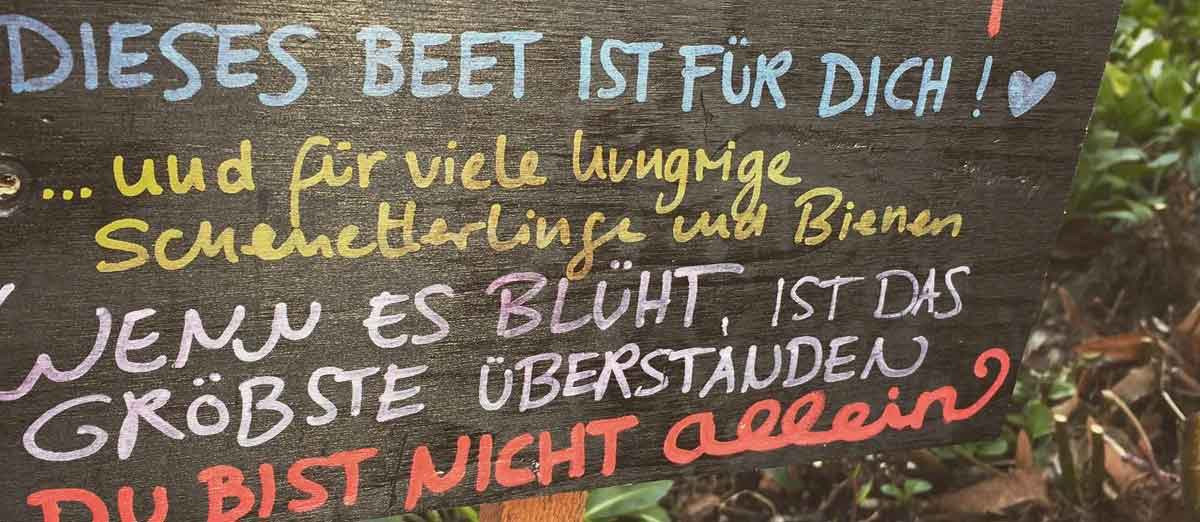 DIESES BEET IST FÜR DICH! ♥
... und für viele hungrige
Schmetterlinge und Bienen
WENN ES BLÜHT, IST DAS
GRÖBSTE ÜBERSTANDEN
DU BIST NICHT allein